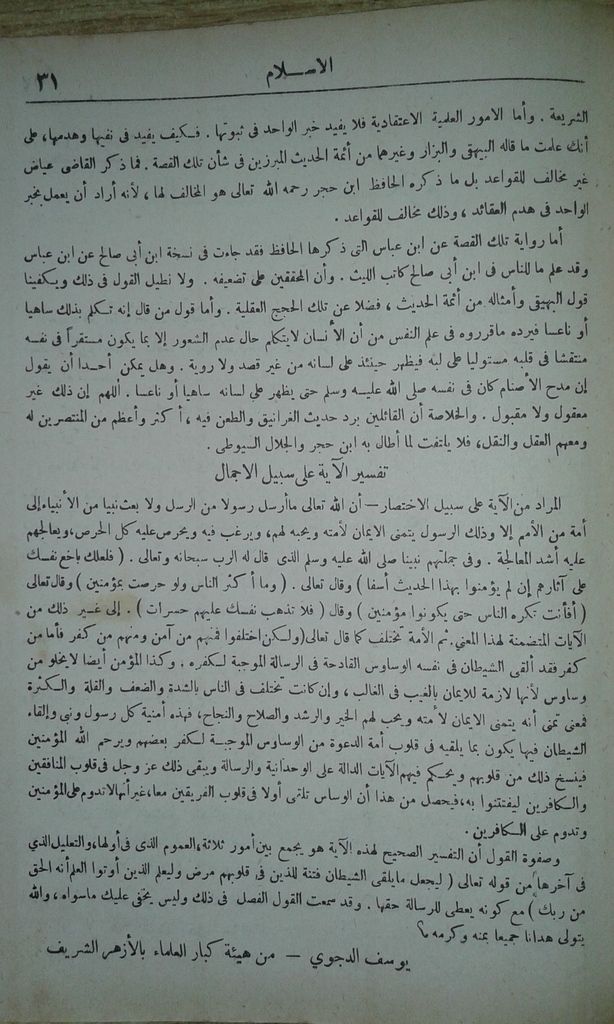 الاسلام
٣١
الشريعة . وأما الامور العلمية الاعتقادية فلا يفيد خبر الواحد فى ثبوتها . فكيف يفيد فى نفيها وهدمها، على
أنك علمت ما قاله البيهقى والبزار وغيرهما من أئمة الحديث المبرزين فى شأن تلك القصة . فما ذكر القاضى عياض
غير مخالف للقواعد بل ما ذكره الحافظ ابن حجر رحمه الله تعالى هو المخالف لها ، لأنه أراد أن يعمل بخبر
الواحد فى هدم العقائد ، وذلك مخالف للقواعد .
أما رواية تلك القصة عن ابن عباس التى ذكرها الحافظ فقد جاءت فى نسخة ابن أبى صالح عن ابن عباس
وقد علم ما للناس فى ابن أبى صالح كاتب الليث . وأن المحققين على تضعيفه . ولا نطيل القول فى ذلك ويكفينا
قول البيهقى وأمثاله من أئمة الحديث ، فضلا عن تلك الحجج العقلية . وأما قول من قال إنه تكلم بذلك ساهيا
أو ناعسا فيرده ماقرروه فى علم النفس من أن الأنسان لايتكلم حال عدم الشعور إلا بما يكون مستقراً فى نفسه
منتقشا فى قلبه مستوليا على لبه فيظهر حينئذ على لسانه من غير قصد ولا روية . وهل يمكن أحدا أن يقول
إن مدح الأصنام كان فى نفسه صلى الله عليه وسلم حتى يظهر على لسانه ساهيا أو ناعسا . أللهم إن ذلك غير
معقول ولا مقبول . والخلاصة أن القائلين برد حديث الغرانيق والطعن فيه ، أكثر وأعظم من المنتصرين له
ومعهم العقل والنقل، فلا يلتفت لما أطال به ابن حجر والجلال السيوطى .
تفسير الآية على سبيل الاجمال
المراد من الآية على سبيل الاختصار — أن الله تعالى ماأرسل رسولا من الرسل ولا بعث نبيا من الأنبياء إلى
أمة من الأمم إلا وذلك الرسول يتمنى الايمان لأمته ويحبه لهم، ويرغب فيه ويحرص عليه كل الحرص، ويعالجهم
عليه أشد المعالجة . وفى جملتهم نبينا صلى الله عليه وسلم الذى قال له الرب سبحانه وتعالى . ( فلعلك باخع نفسك
على آثارهم إن لم يؤمنوا بهذا الحديث أسفا ) وقال تعالى . ( وما أكثر الناس ولو حرصت بمؤمنين ) وقال تعالى
( أفأنت تكره الناس حتى يكونوا مؤمنين ) وقال ( فلا تذهب نفسك عليهم حسرات ) . إلى غير ذلك من
الآيات المتضمنة لهذا المعنى. ثم الأمة تختلف كما قال تعالى (ولكن اختلفوا فمنهم من آمن ومنهم من كفر فأما من
كفر فقد ألقى الشيطان فى نفسه الوساوس القادحة فى الرسالة الموجبة لكفره . وكذا المؤمن أيضا لايخلو من
وساوس لأنها لازمة للايمان بالغيب فى الغالب ، وإن كانت تختلف فى الناس بالشدة والضعف والقلة والكثرة
فمعنى تمنى أنه يتمنى الايمان لأمته ويحب لهم الخير والرشد والصلاح والنجاح، فهذه أمنية كل رسول ونبى وإلقاء
الشيطان فيها يكون بما يلقيه فى قلوب أمة الدعوة من الوساوس الموجبة لكفر بعضهم ويرحم الله المؤمنين
فينسخ ذلك من قلوبهم ويحكم فيهم الآيات الدالة على الوحدانية والرسالة ويبقى ذلك عز وجل فى قلوب المنافقين
والكافرين ليفتتنوا به، فيحصل من هذا أن الوساس تلقى أولا فى قلوب الفريقين معا، غير أنها لاتدوم على المؤمنين
وتدوم على الكافرين .
وصفوة القول أن التفسير الصحيح لهذه الآية هو يجمع بين أمور ثلاثة، العموم الذى فى أولها، والتعليل الذى
فى آخرها من قوله تعالى ( ليجعل مايلقى الشيطان فتنة للذين فى قلوبهم مرض وليعلم الذين أوتوا العلم أنه الحق
من ربك ) مع كونه يعطى للرسالة حقها . وقد سمعت القول الفصل فى ذلك وليس يخفى عليك ماسواه ، والله
يتولى هدانا جميعا بمنه وكرمه
يوسف الدجوي — من هيئة كبار العلماء بالأزهر الشريف